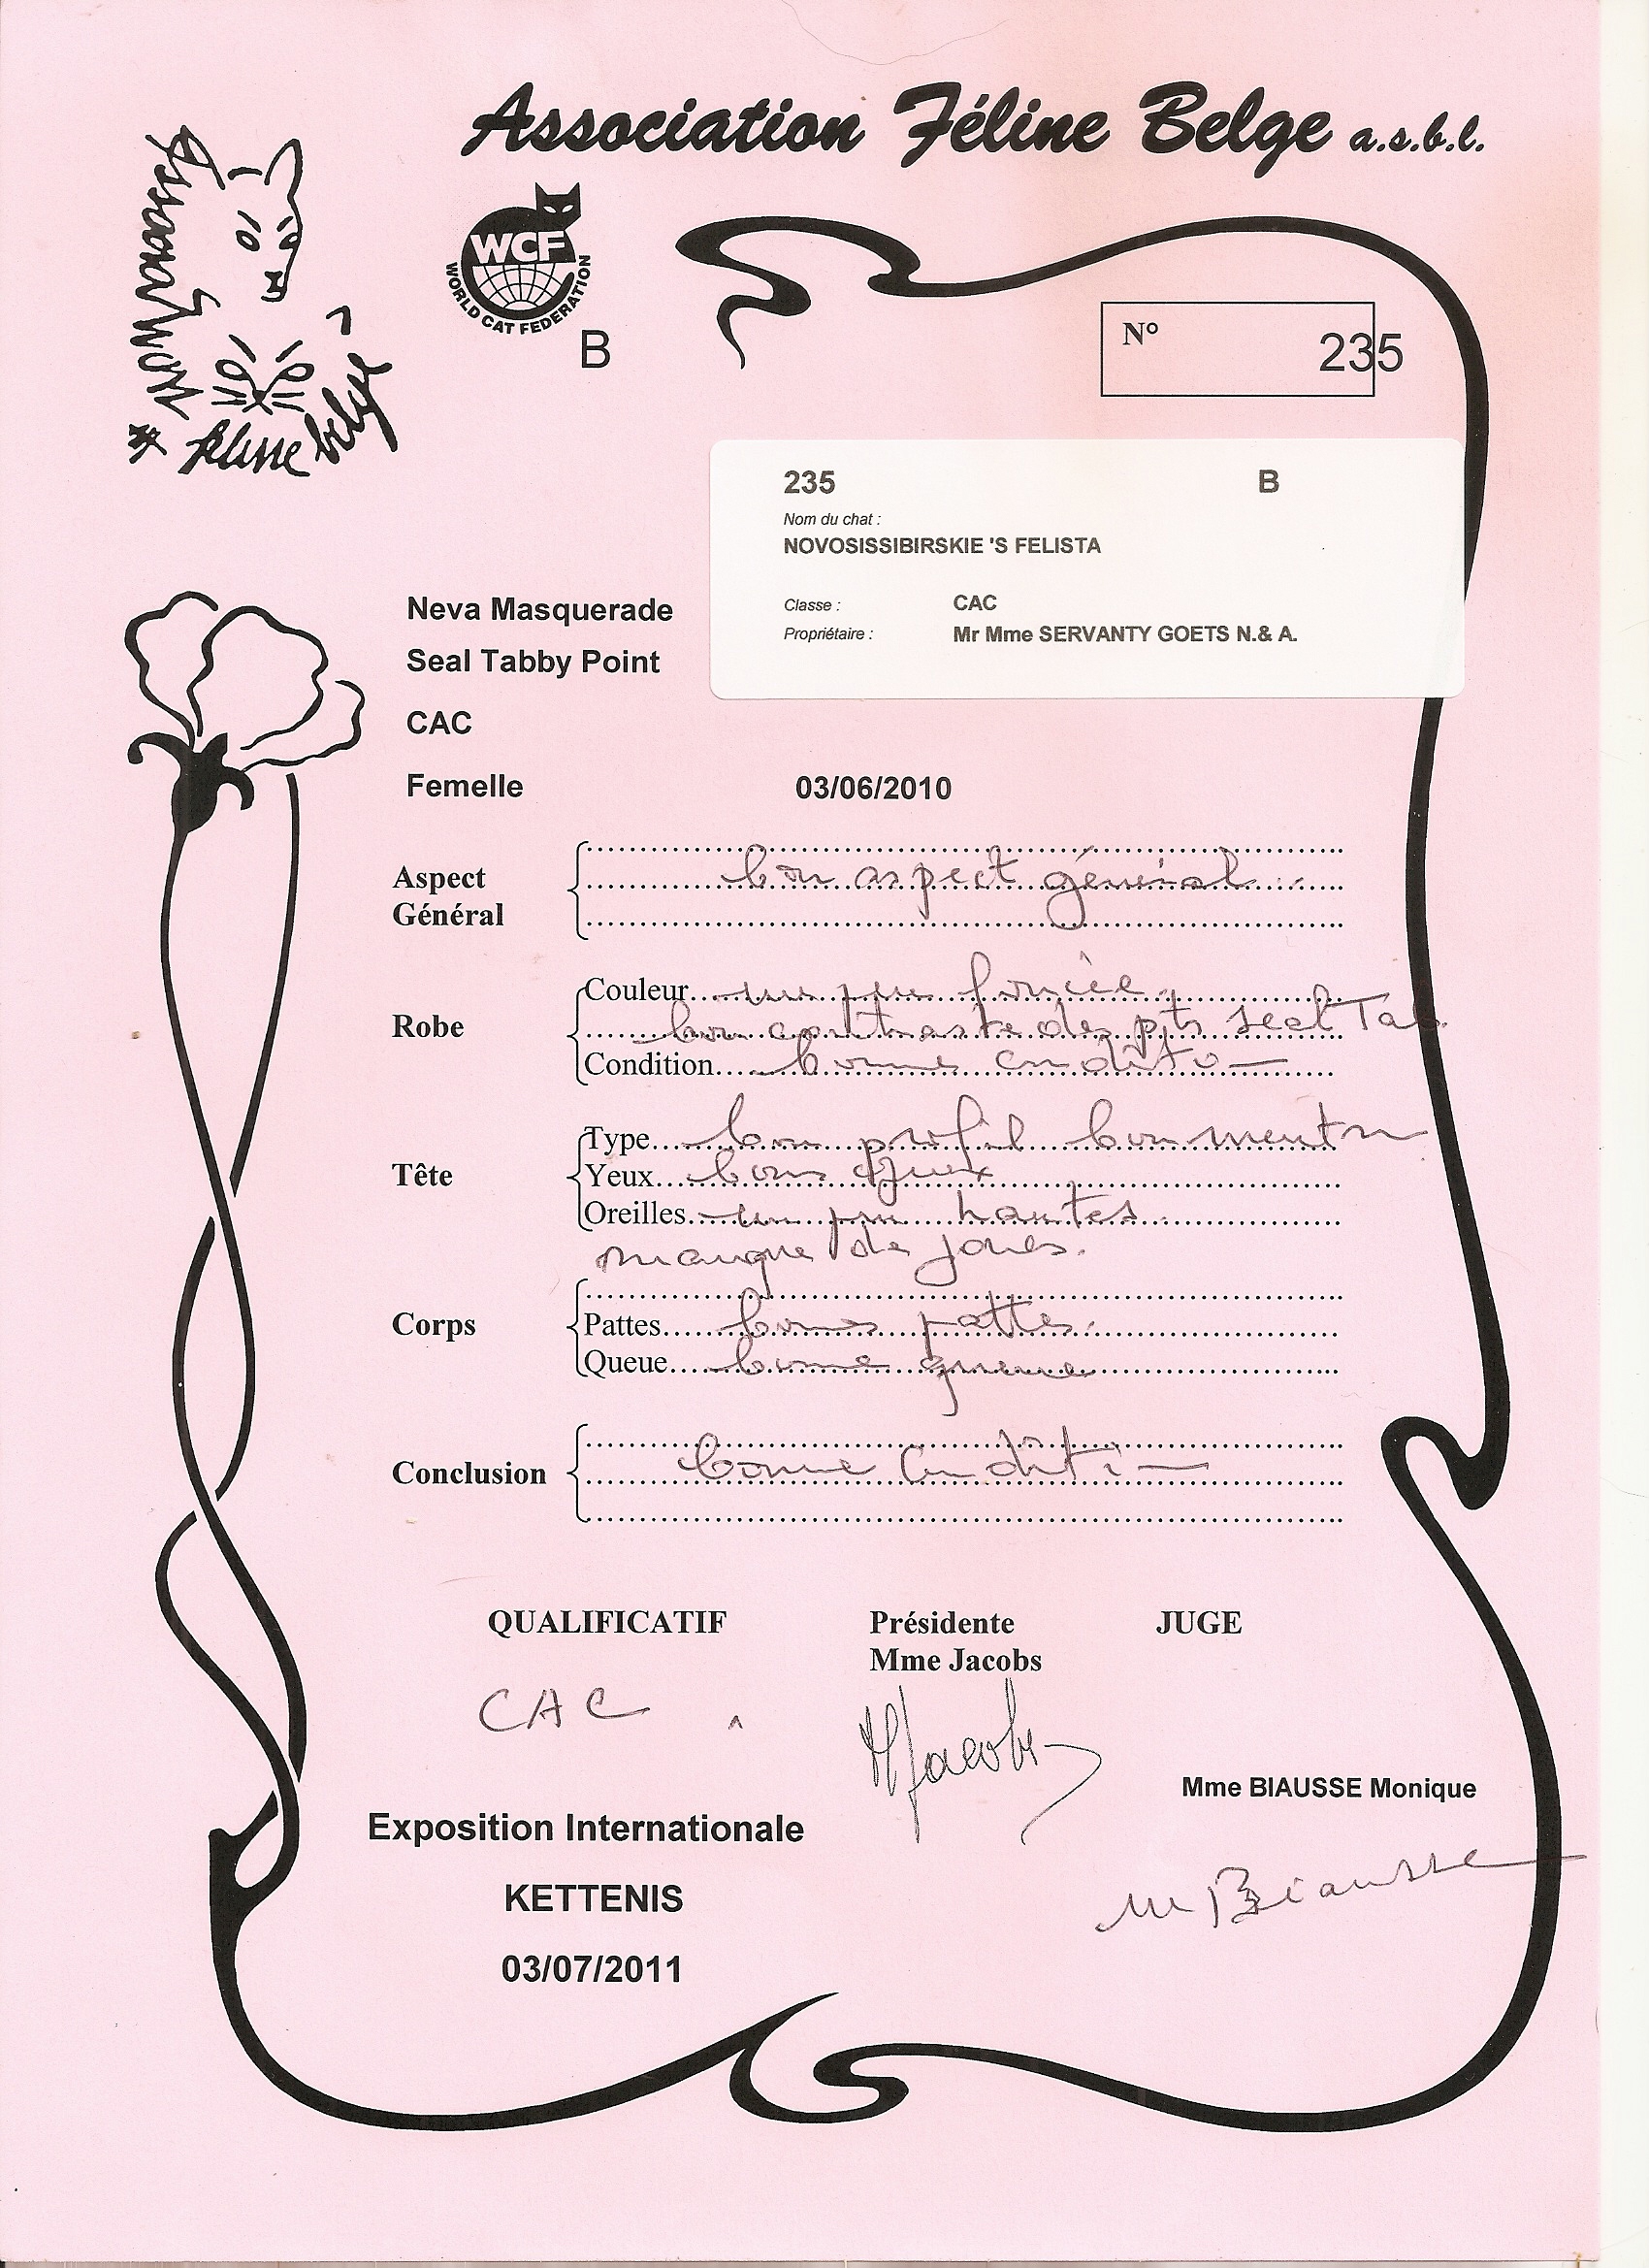 Association Féline Belge a.s.b.l.
Association
féline belge
WCF
WORLD CAT FEDERATION
B
N° 235
235 B
Nom du chat :
NOVOSISSIBIRSKIE 'S FELISTA
Classe : CAC
Propriétaire : Mr Mme SERVANTY GOETS N.& A.
Neva Masquerade
Seal Tabby Point
CAC
Femelle 03/06/2010
Aspect Général bon aspect général
Robe
Couleur un peu foncée
bon contraste des pts seal Tab.
Condition bonne condition
Tête
Type bon profil bon menton
Yeux bons yeux
Oreilles un peu hautes
manque de joues.
Corps
Pattes bonnes pattes.
Queue bonne queue
Conclusion bonne condition
QUALIFICATIF Présidente JUGE
Mme Jacobs
CAC
MJacobs
Mme BIAUSSE Monique
Exposition Internationale
M Biausse
KETTENIS
03/07/2011